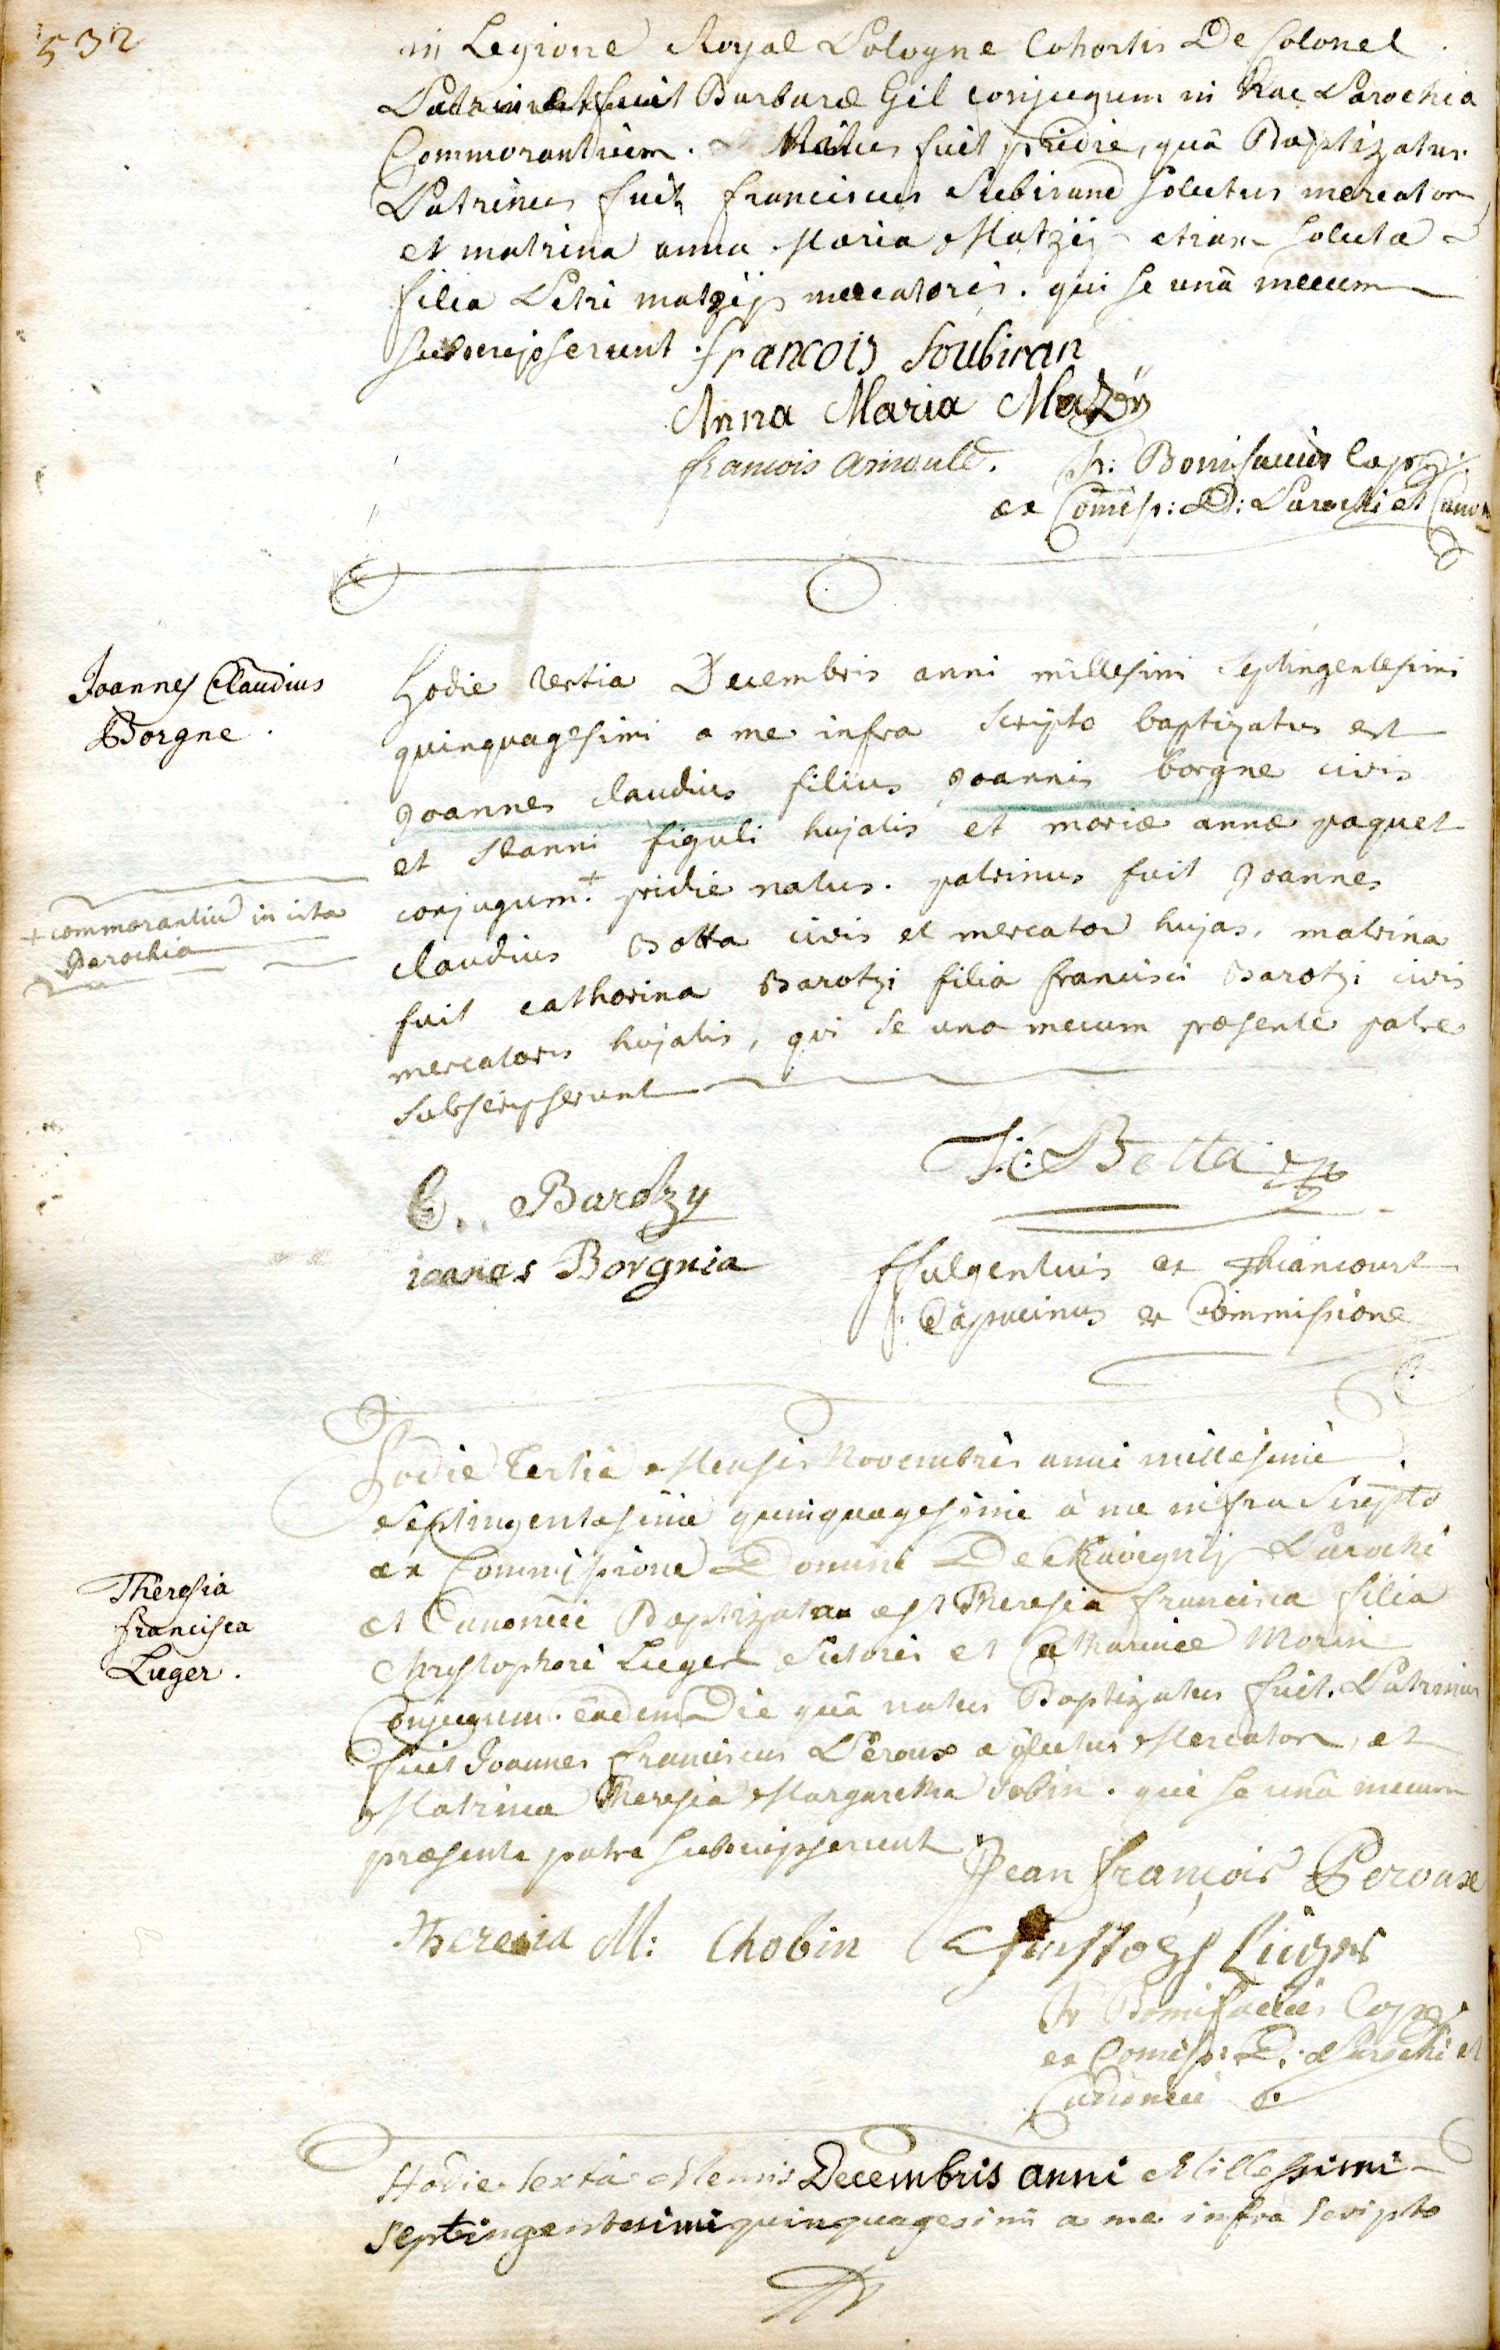 532
in Legione Royal Pologne Cohortis De Colonel
Barbaræ Gil conjugum in hac Parochia
Commorantium. Natus fuit pridie, quâ Baptizatus
Patrinus fuit franciscus Subirand Solutus mercator
et matrina anna Maria Matzij etiam Soluta
filia Petri matzijs mercatoris. qui se unâ mecum
subscripserunt. francois Soubiran
Anna Maria Mazÿ
francois
fr: Bonifacius Cap:
ex Comiss: D: Parochi et Canon
Joannes Claudius
Borgne.
hodie tertia Decembris anni millesimi septingentesimi
quinquagesimi a me infra scripto baptizatus est
Joannes claudius filius Joannis borgne civis
et stanni figuli hujatis et mariæ annæ paquet
conjugum.+ pridie natus. patrinus fuit Joannes
+ commorantiu in ista
Parochia
claudius Botta civis et mercator hujas, matrina
fuit catharina Barotzi filia francisci Barotzi civis
mercatoris hujatis, qui se una mecum præsente patre
subscripserunt
J:C: Botta
C. Barotzy
ioanes Borgnia
f fulgentius ex Thiancourt
Capucinus ex Commissione
Hodie tertiâ Mensis Novembris anni millesimi
Septingentesimi quinquagesimi à me infra Scripto
ex Commissione Domini De Parochi
et Canonici Baptizata est Theresia francisca filia
Theresia
francisca
Luger.
Christophori Luger Sutoris et Catharinæ Morin
Conjugum. eâdem Die quâ natus Baptizatus fuit. Patrinus
fuit Joannes franciscus Peroux Mercator, et
Matrina Theresia Margaretha Jobin. qui se unâ mecum
præsente patre subscripserunt
Jean françois Peroux
Theresia M: Chobin
fr Bonifacius Cap:
ex Comiss: D: Parochi et
Canonici
Hodie sexta Mensis Decembris anni Millesimi
septingentesimi quinquagesimi a me infra scripto